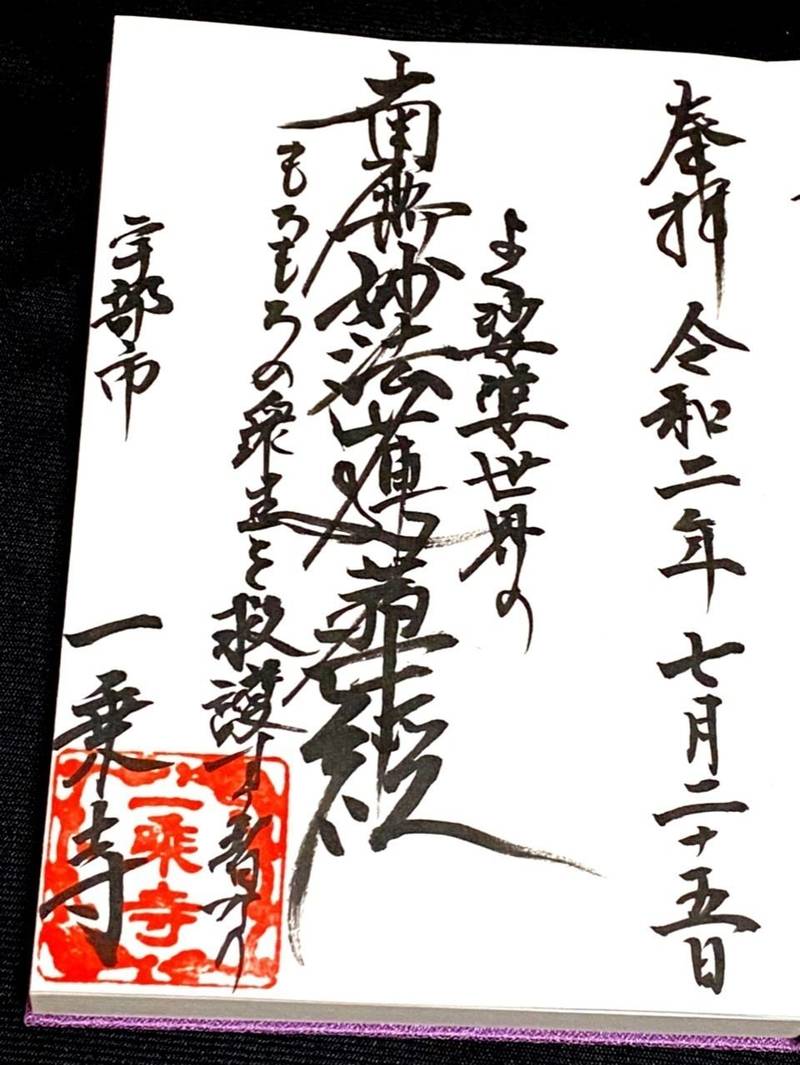 奉拝 令和二年 七月二十五日
よく娑婆世界の
南無妙法蓮華経
もろもろの衆生を救護する者なり
宇部市 一乗寺
一乘寺